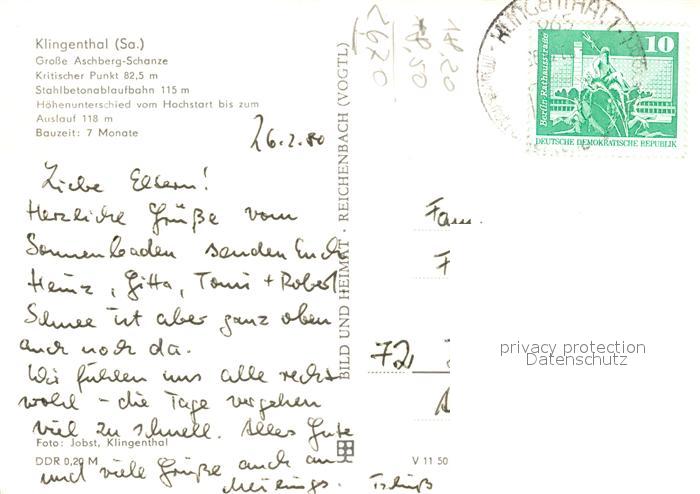 Klingenthal (Sa.)
Große Aschberg-Schanze
Kritischer Punkt 82,5 m
Stahlbetonablaufbahn 115 m
Höhenunterschied vom Hochstart bis zum
Auslauf 118 m
Bauzeit: 7 Monate
26.2.80
Liebe Eltern!
Herzliche Grüße vom
Sonnenbaden senden Euch
Heinz, Gitta, Tomi + Robert
Schnee ist aber ganz oben
auch noch da.
Wir fühlen uns alle recht
wohl - die Tage vergehen
viel zu schnell. Alles Gute
und viele Grüße auch an
Tschüß
Foto: Jobst, Klingenthal
DDR 0,20 M
BILD UND HEIMAT · REICHENBACH (VOGTL)
V 11 50
2670
18,50
18,20
KLINGENTHAL 1
10
Berlin-Rathausstraße
DEUTSCHE DEMOKRATISCHE REPUBLIK
Fam.
72
privacy protection
Datenschutz